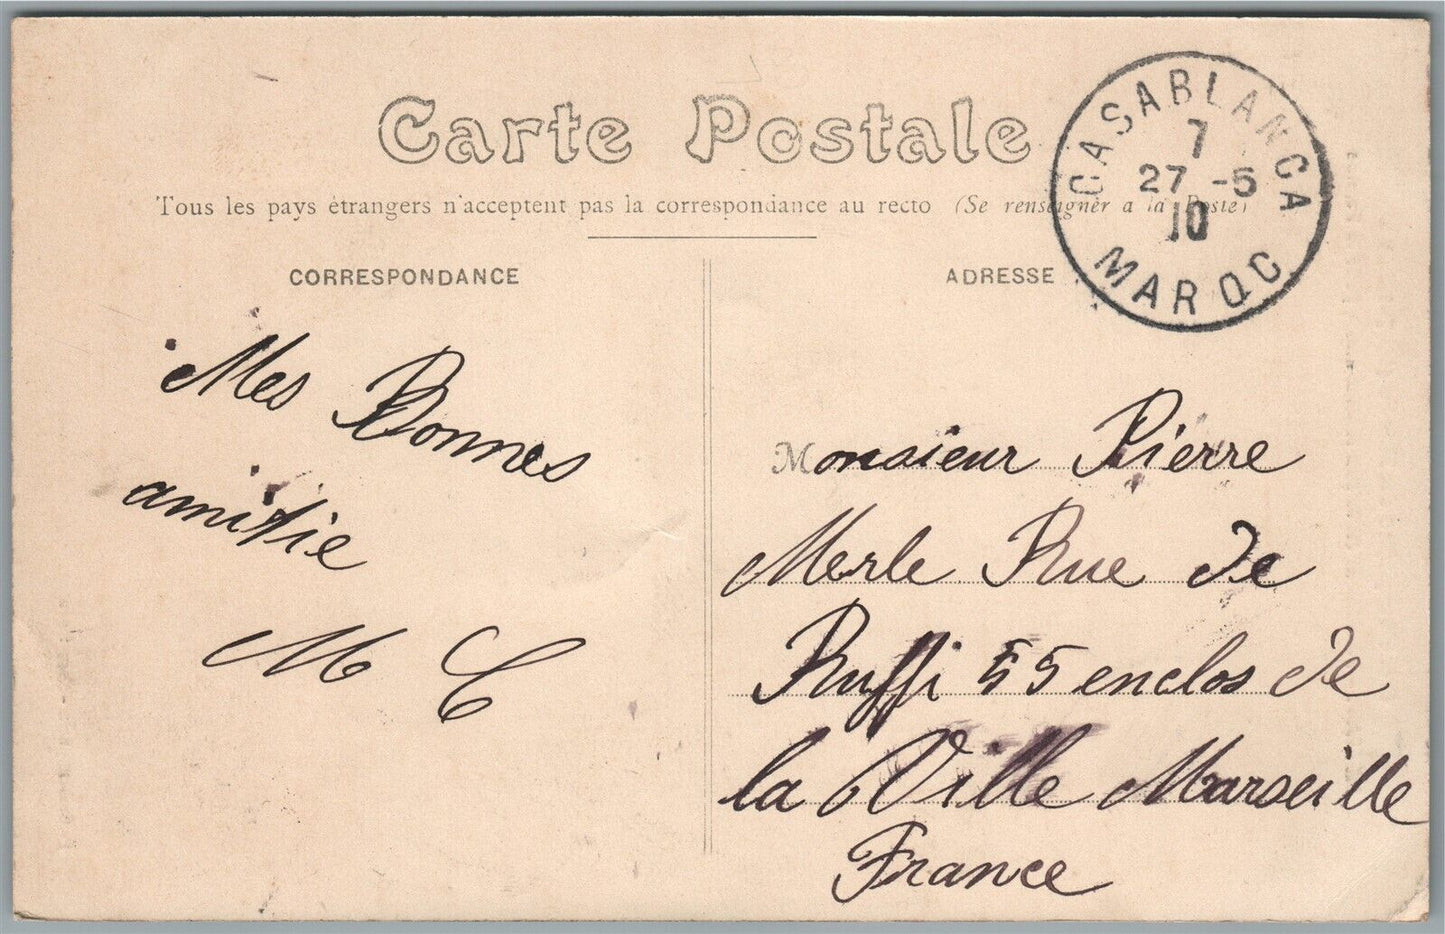 Carte Postale
Tous les pays étrangers n'acceptent pas la correspondance au recto (Se renseigner a la Poste)
CASABLANCA
7
27 -5
10
MAROC
CORRESPONDANCE
ADRESSE
Mes Bonnes
amitie
M C
Monsieur Pierre
Merle Rue de
Ruffi 55 enclos de
la Ville Marseille
France